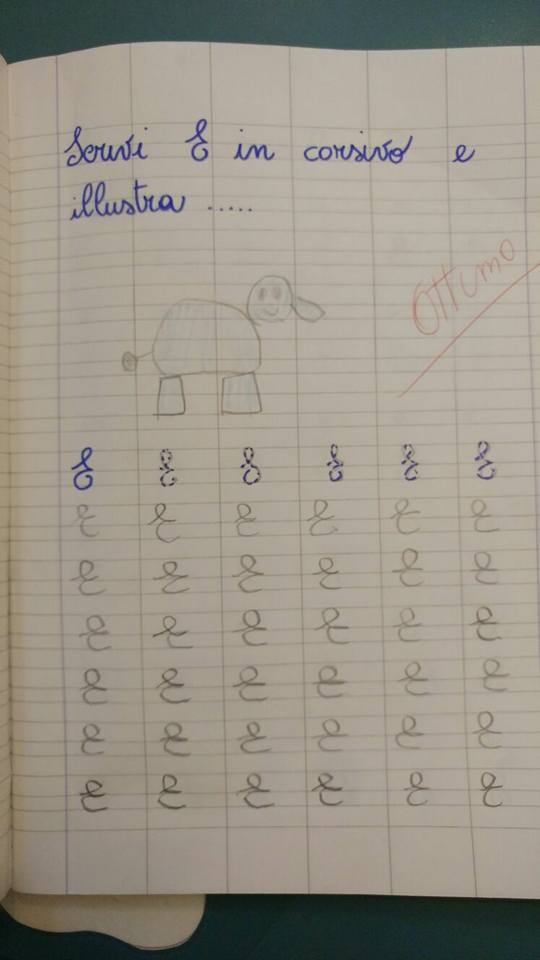 Scrivi E in corsivo e
illustra .....
Ottimo
E E E E E E
E E E E E E
E E E E E E
E E E E E E
E E E E E E
E E E E E E
E E E E E E